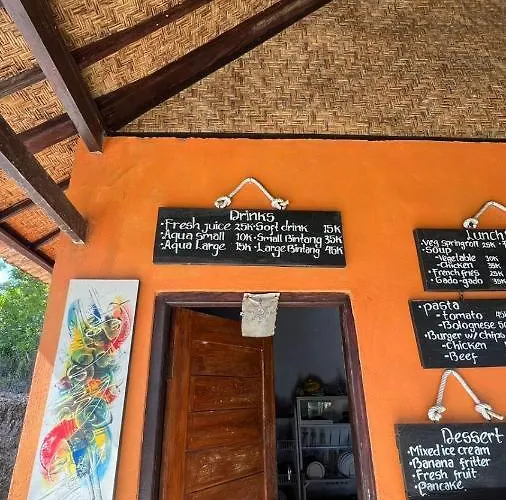 Drinks
•Fresh juice 25K •Soft drink 15K
•Aqua Small 10K •Small Bintang 35K
•Aqua Large 15K •Large Bintang 45K
Lunch
Veg springroll 25K
•Soup
-Vegetable 30K
-Chicken 35K
•French fries 25K
•Gado-gado 35K
•Pasta
-tomato 45K
-Bolognese 50
•Burger w/ chips
-Chicken
-Beef
Dessert
•Mixed ice cream
•Banana fritter
•Fresh fruit
•Pancake